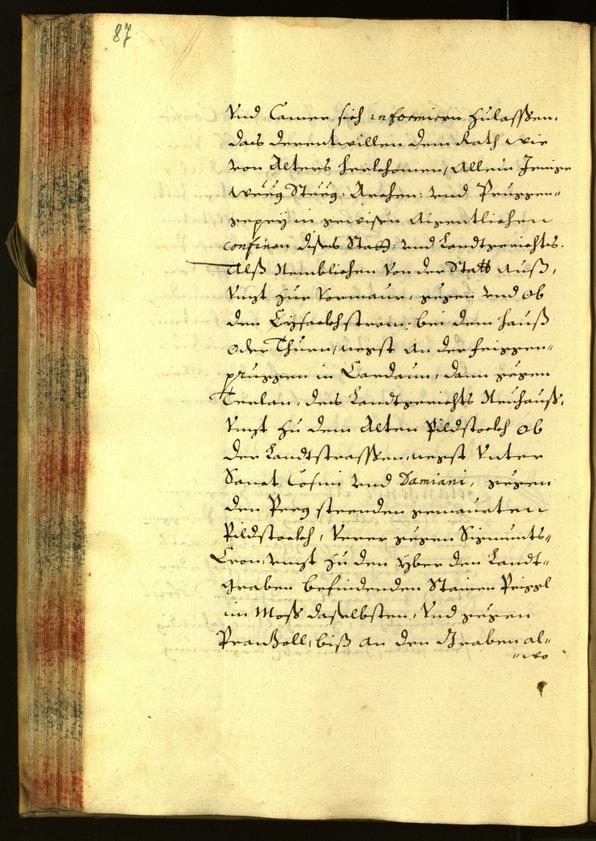 87
Vnd Camer sich informiern zulassen,
das derentwillen dem Rath wie
von Alters herkhomen, Allein Jenige
Weeg Steeg: Archen: vnd Pruggen-
gepey in gewisen Aigentlichen
confinen dises Statt: vnd Landtgerichts.
Alß Nemblichen von der Statt auß,
vnzt zur Vormaur, gegen vnd ob
den Eysackhstrom: bei dem hauß
oder Thurn, negst an der steggen-
pruggen in Cardaun, dann gegen
Terlan, des Landtgerichts Neuhauß,
vnzt zu dem Alten Pildstockh ob
der Landtstrassen, negst vnter
Sanct Cosmi vnd Damiani, gegen
den Perg steenden gemaurten
Pildstockh, verer gegen Sigmunts-
Cron, vnzt zu den yber den Landt-
graben befindenden Stainen Priggl
im Moß daselbsten, Vnd gegen
Pranzoll, biß an den Graben al-
wo